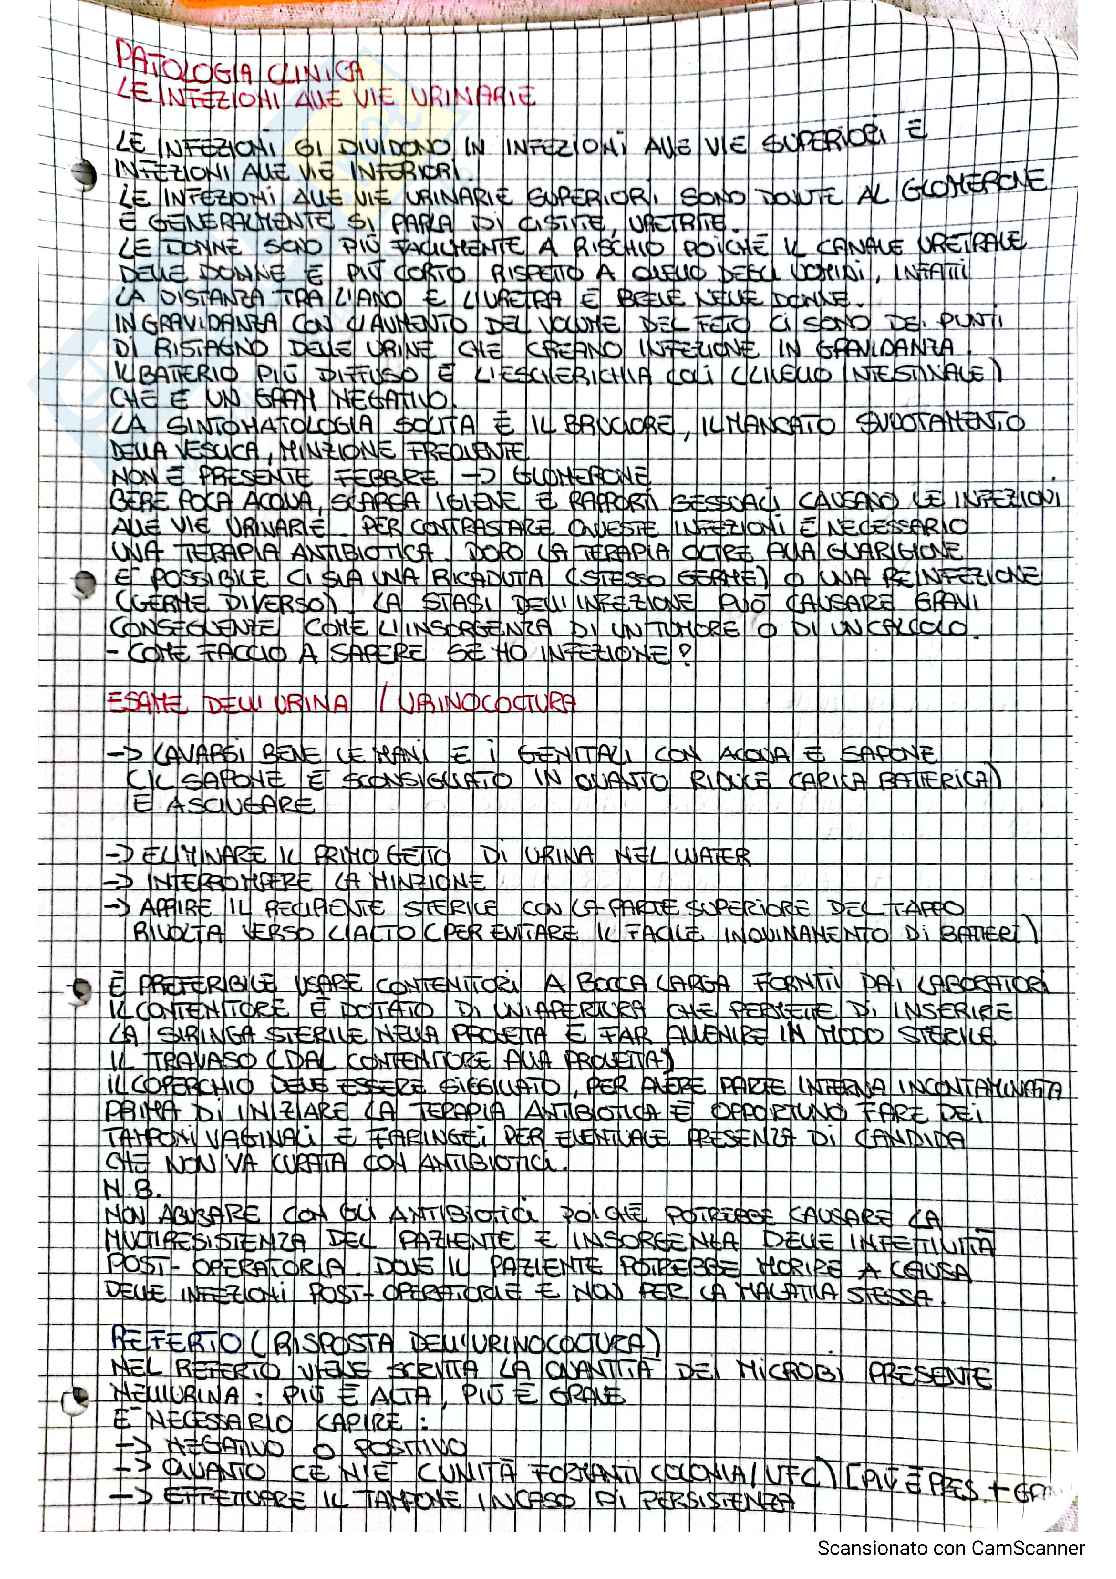 PATOLOGIA CLINICA
LE INFEZIONI ALLE VIE URINARIE
LE INFEZIONI SI DIVIDONO IN INFEZIONI ALLE VIE SUPERIORI E
INFEZIONI ALLE VIE INFERIORI.
LE INFEZIONI ALLE VIE URINARIE SUPERIORI SONO DOVUTE AL GLOMERONE
E GENERALMENTE SI PARLA DI CISTITE, URETRITE.
LE DONNE SONO PIÙ FACILMENTE A RISCHIO POICHÈ IL CANALE URETRALE
DELLE DONNE È PIÙ CORTO RISPETO A QUELLO DEGLI UOMINI, INFATTI
LA DISTANZA TRA L'ANO E L'URETRA È BREVE NELLE DONNE.
IN GRAVIDANZA CON L'AUMENTO DEL VOLUME DEL FETO CI SONO DEI PUNTI
DI RISTAGNO DELLE URINE CHE CREANO INFEZIONE IN GRAVIDANZA.
IL BATERIO PIÙ DIFFUSO È L'ESCHERICHIA COLI (LIVELLO INTESTINALE)
CHE È UN GRAM NEGATIVO.
LA SINTOMATOLOGIA SOLITA È IL BRUCIORE, IL MANCATO SVUOTAMENTO
DELLA VESCICA, MINZIONE FREQUENTE
NON È PRESENTE FEBBRE -> GLOMERONE
BERE POCA ACQUA, SCARSA IGIENE E RAPPORTI SESSUALI CAUSANO LE INFEZIONI
ALLE VIE URINARIE. PER CONTRASTARE QUESTE INFEZIONI È NECESSARIO
UNA TERAPIA ANTIBIOTICA. DOPO LA TERAPIA OLTRE ALLA GUARIGIONE
E' POSSIBILE CI SIA UNA RICADUTA (STESSO GERME) O UNA REINFEZIONE
(GERME DIVERSO). LA STASI DELL'INFEZIONE PUÒ CAUSARE GRAVI
CONSEGUENTE COME L'INSORGENZA DI UN TUMORE O DI UN CALCOLO.
- COME FACCIO A SAPERE SE HO INFEZIONE?
ESAME DELL'URINA / URINOCOCTURA
-> LAVARSI BENE LE MANI E I GENITALI CON ACQUA E SAPONE
(IL SAPONE È SCONSIGLIATO IN QUANTO RIDUCE CARICA BATTERICA)
E ASCIUGARE
-> ELIMINARE IL PRIMO GETTO DI URINA NEL WATER
-> INTERROMPERE LA MINZIONE
-> APRIRE IL RECIPIENTE STERILE CON LA PARTE SUPERIORE DEL TAPPO
RIVOLTA VERSO L'ALTO (PER EVITARE IL FACILE INQUINAMENTO DI BATERI)
È PREFERIBILE USARE CONTENITORI A BOCCA LARGA FORNITI DAI LABORATORI
IL CONTENITORE È DOTATO DI UN'APERTURA CHE PERMETTE DI INSERIRE
LA SIRINGA STERILE NELLA PROVETTA E FAR AVVENIRE IN MODO STERILE
IL TRAVASO (DAL CONTENITORE ALLA PROVETTA)
IL COPERCHIO DEVE ESSERE SIGILLATO, PER AVERE PARTE INTERNA INCONTAMINATA
PRIMA DI INIZIARE LA TERAPIA ANTIBIOTICA È OPPORTUNO FARE DEI
TAMPONI VAGINALI E FARINGEI PER EVENTUALE PRESENZA DI CANDIDA
CHE NON VA CURATA CON ANTIBIOTICI.
N.B.
NON ABUSARE CON GLI ANTIBIOTICI POICHÈ POTREBBE CAUSARE LA
MULTIRESISTENZA DEL PAZIENTE E INSORGENZA DELLE INFETTIVITÀ
POST-OPERATORIA. DOVE IL PAZIENTE POTREBBE MORIRE A CAUSA
DELLE INFEZIONI POST-OPERATORIE E NON PER LA MALATTIA STESSA.
REFERTO (RISPOSTA DELL'URINOCOCTURA)
NEL REFERTO VIENE SCRITTA LA QUANTITÀ DEI MICROBI PRESENTE
NELL'URINA: PIÙ È ALTA, PIÙ È GRAVE
E' NECESSARIO CAPIRE:
-> NEGATIVO O POSITIVO
-> QUANTO CE N'È (UNITÀ FORMANTI COLONIA/UFC) (PIÙ È PRES. +
-> EFFETTUARE IL TAMPONE IN CASO DI PERSISTENZA
Scansionato con CamScanner